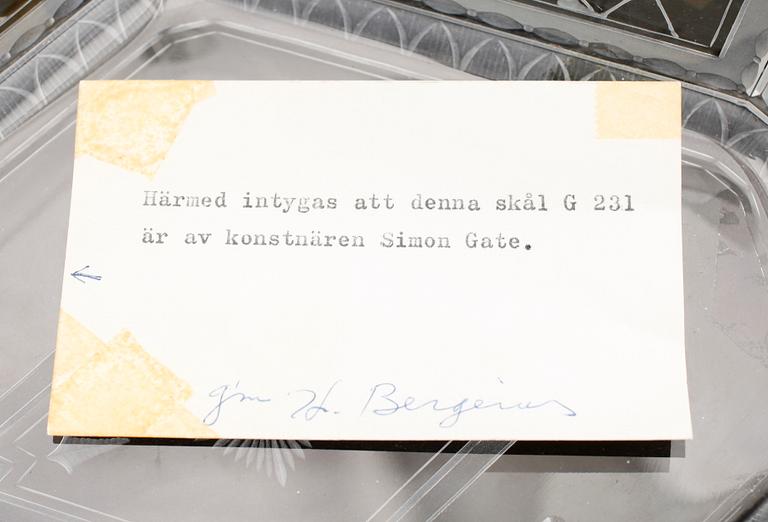 Härmed intygas att denna skål G 231
är av konstnären Simon Gate.
g'm H. Bergenius